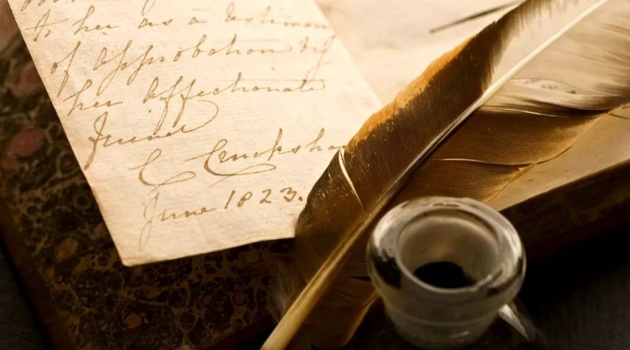 to her as a testimon
of approbation by
her affectionate
friend
C Cruiksha
June 1823.